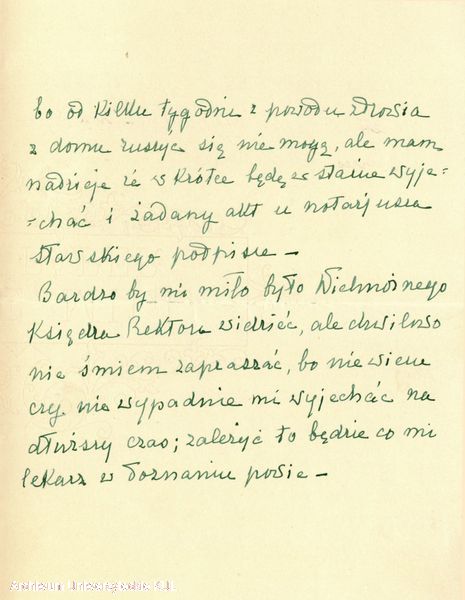 bo od kilku tygodni z powodu zdrowia
z domu ruszyć się nie mogę, ale mam
nadzieję że w krótce będę w stanie wyje-
-chać i żądany akt u notarjusza
Stawskiego podpiszę –
Bardzo by mi miło było Wielmożnego
Księdza Rektora widzieć, ale chwilowo
nie śmiem zapraszać, bo nie wiem
czy nie wypadnie mi wyjechać na
dłuższy czas; zależyć to będzie co mi
lekarz w Poznaniu powie –